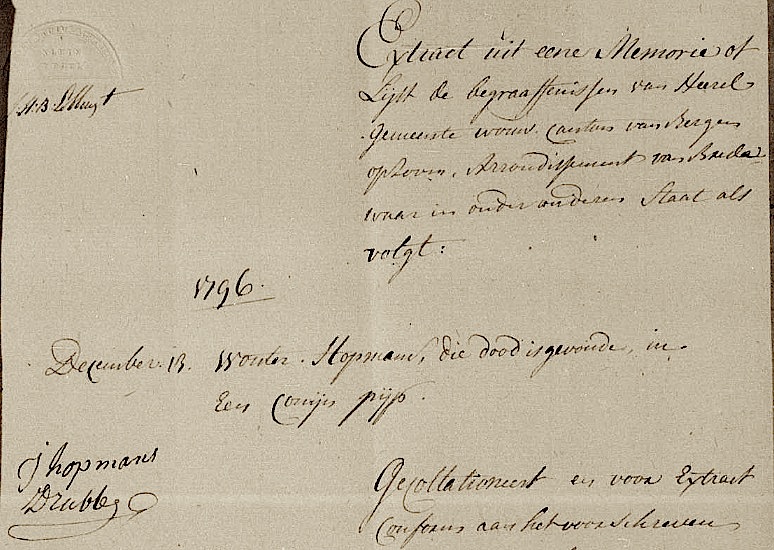 Extract uit eene Memorie of
Lijst de begraaffenissen van Heerel
gemeente wouw. Canton van Bergen
opzoom, Arrondissement van Breda
waar in onder anderen Staat als
volgt:
1796.
December. 13. Wouter. Hopmans, die dood is gevonde, in
Een Conijn pijp.
J hopmans
Gecollationeert en voor Extract
Conform aan het voorschreven